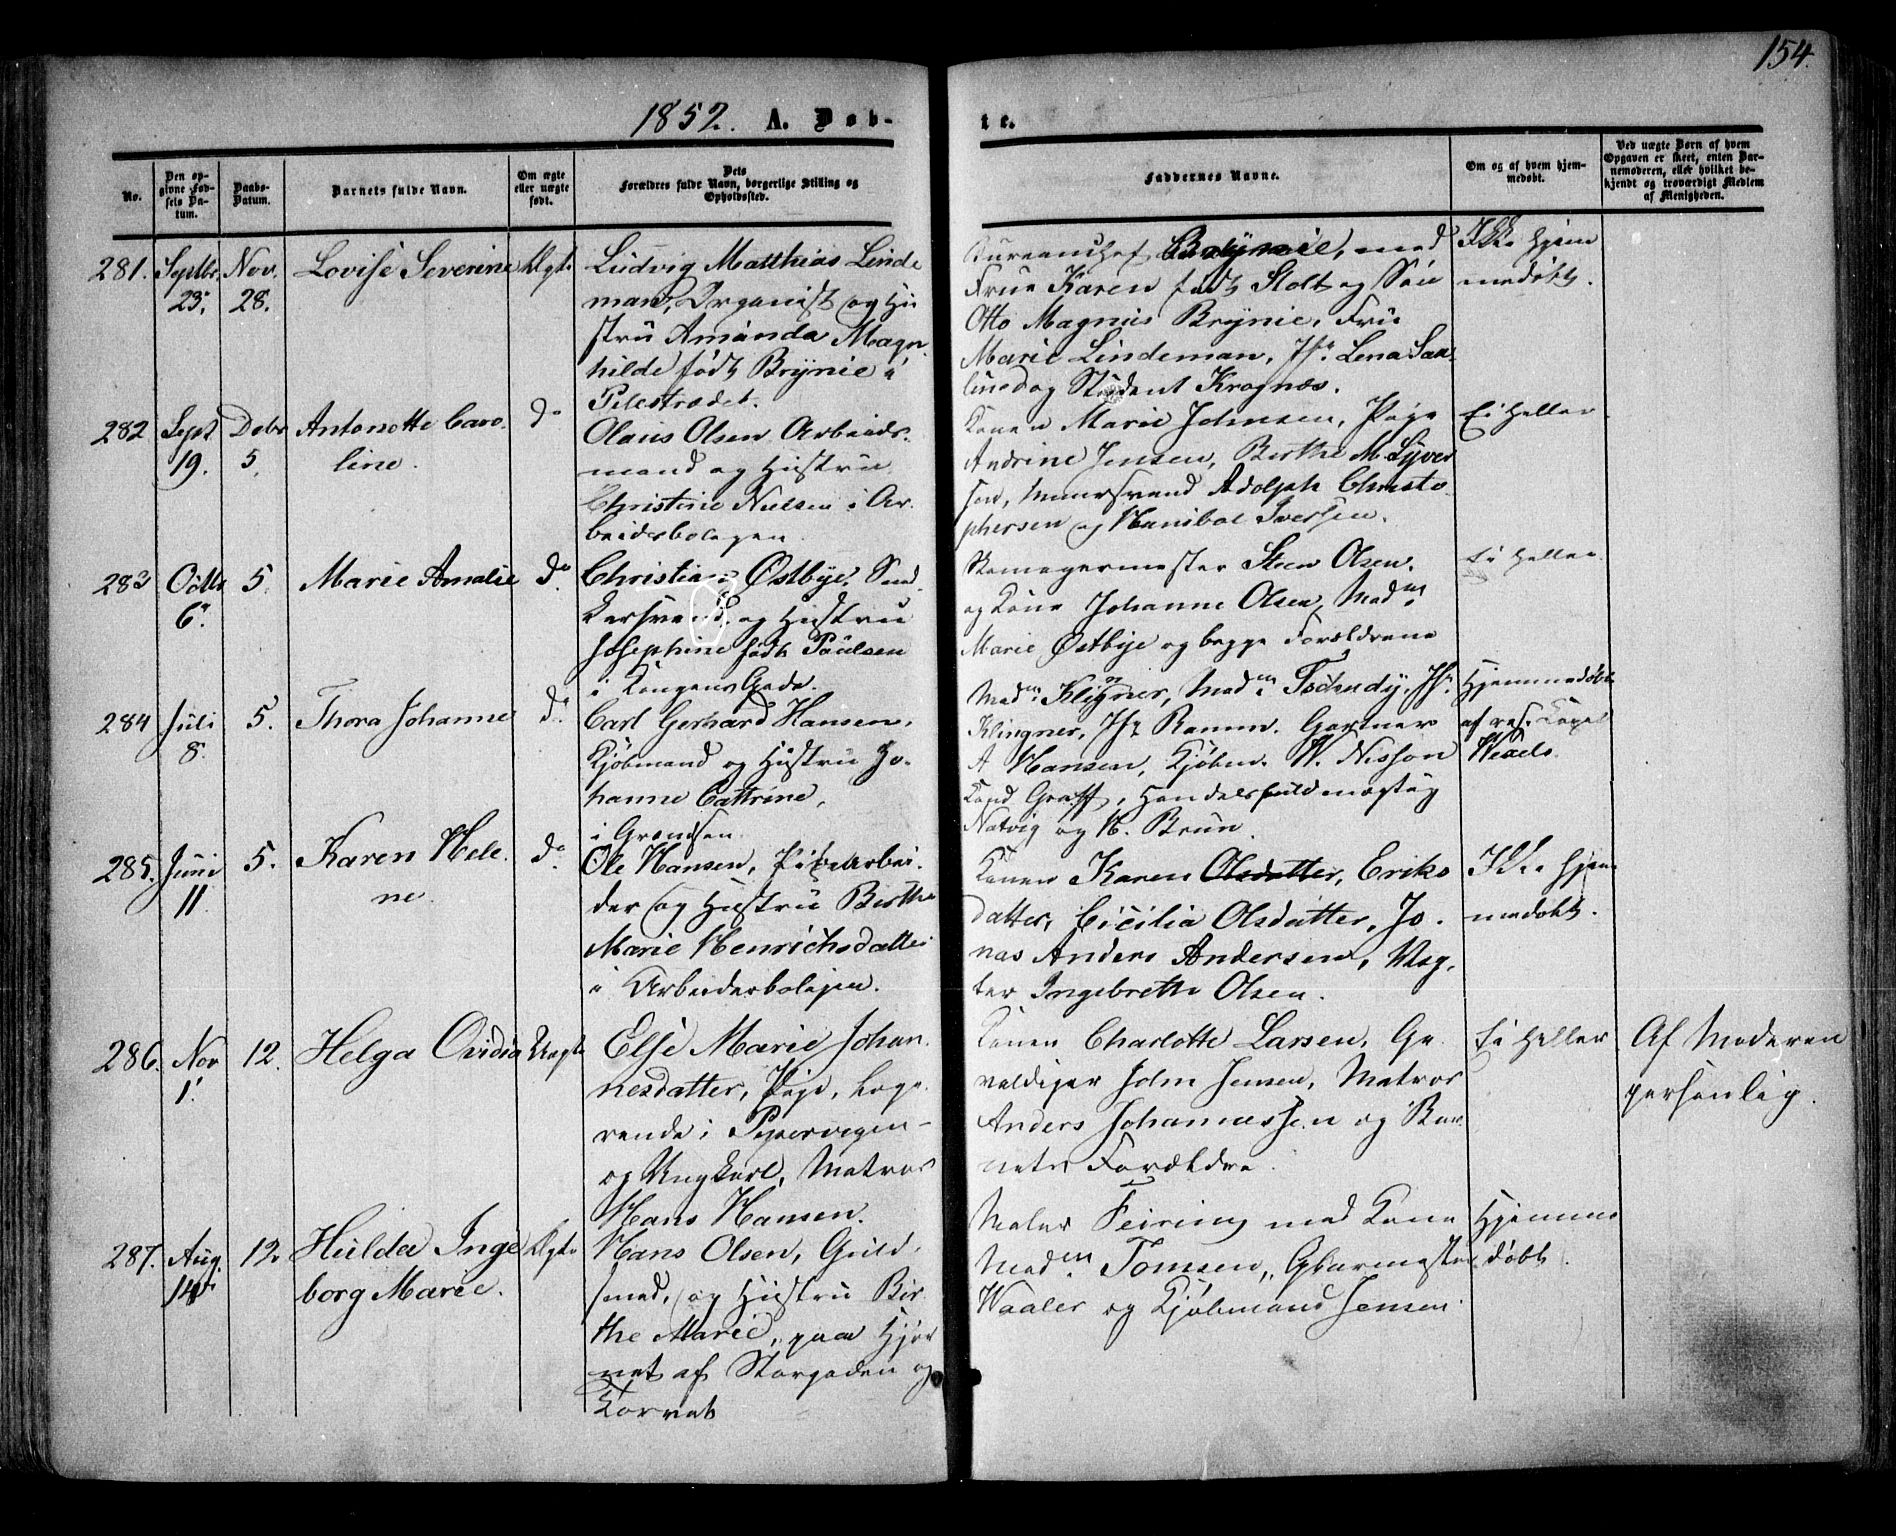 154.
1852. A. Døb-
te.
No.
Den opgivne Fødsels Datum.
Daabs-Datum.
Barnets fulde Navn.
Om ægte eller uægte født.
Dets Forældres fulde Navn, borgerlige Stilling og Opholdssted.
Faddernes Navne.
Om og af hvem hjemmedøbt.
Ved uægte Børn af hvem Opgaven er skeet, enten Barnemoderen, eller hvilket bekjendt og troværdigt Medlem af Menigheden.
281. Septbr. 23. Nov. 28. Lovise Severine Ægte
Ludvig Matthias Linde
man, Organist og Hu
stru Amanda Magn
hilde født Brynie i
Pilestrædet.
Bureauchef Brynie, med
Frue Karen født Stolt og Søn
Otto Magnus Brynie, Fru
Marie Lindeman, Jfr. Lena
og Student Krognæs.
Ikke hjem
medøbt.
282 Sept 19. Debr 5. Antonette Caro
line. do
Olaus Olsen Arbeids-
mand og Hustru
Christine Nielsen i Ar-
beidsbolagen.
Konen Marie Johnsen, Pige
Andrine Jensen, Berthe M. Syver
sen, Muursvend Adolph Christo-
phersen og Hanibal Iversen.
Ei heller.
283 Octbr 6. 5. Marie Amalie do
Christian Østbye, Sned
kersvend, og Hustru
Josephine født Paulsen
i Kongens Gade.
Skomagermester Steen Olsen.
og Kone Johanne Olsen, Madm
Marie Østbye og begge Forældrene
Ei heller.
284 Juli 8. 5. Thora Johanne do
Carl Gerhard Hansen,
Kjøbmand og Hustru Jo-
hanne Cattrine,
i Grændsen.
Madm. Kligner, Madm. Tschudy, Jfr.
Klingner, Jfr. Ramm. Gartner
A Hansen, Kjøbm. W. Nisson
Cand Graff, Handelsfuldmægtig
Natvig og N. Brun.
Hjemmedøbt
af res. Capel
Wexels.
285. Juni 11 5. Karen Hele-
ne. do
Ole Hansen, Arbei-
der og Hustru Berthe
Marie Henrichsdatter
i Arbeiderbolagen.
Konen Karen Olsdatter, Eriks
datter, Cicilia Olsdatter, Jo-
nas Anders Andersen, Væg-
ter Ingebrett Olsen.
Ikke hjem
medøbt.
286. Nov 1. 12. Helga Ovidia Uægte
Else Marie Johan-
nesdatter, Pige, loge-
rende i Pipervigen
og Ungkarl, Matros
Hans Hansen.
Konen Charlotte Larsen, Ge-
valdiger John Jensen, Matros
Anders Johannessen og Bar-
nets Forældre.
Ei heller
Af Moderen
personlig.
287. Aug. 14de 12. Hulda Inge
borg Marie. Ægte
Hans Olsen, Guld-
smed, og Hustru Bir
the Marie, paa Hjør
net af Storgaden og
Torvet
Maler Feiring med Kone
Madm. Tomsen, Glarmester
Waaler og Kjøbmand Jensen.
Hjemme
døbt.